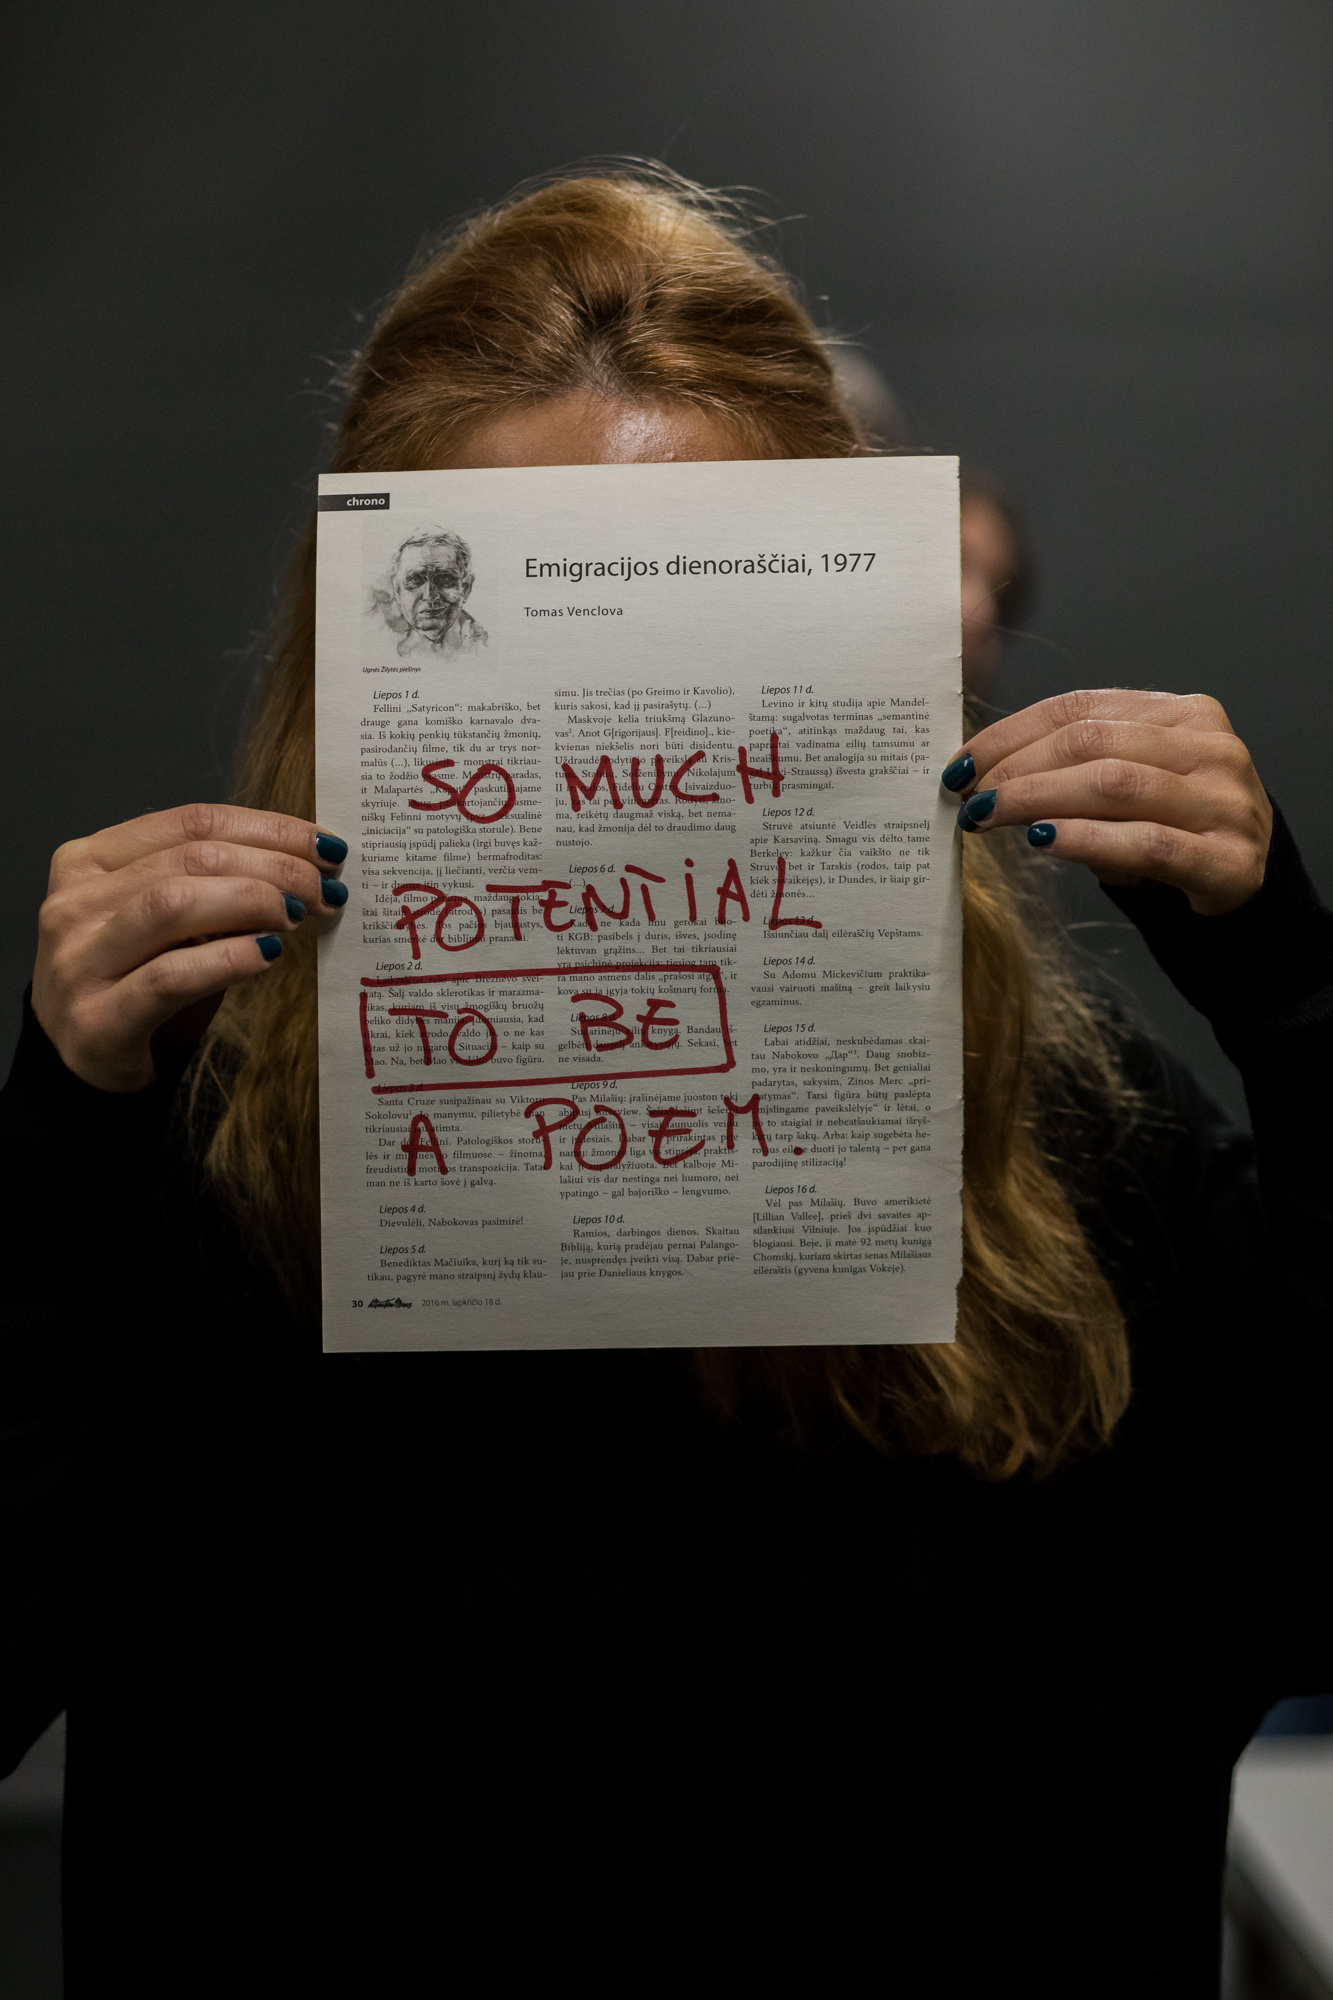 chrono
Emigracijos dienoraščiai, 1977
Tomas Venclova
Ugnės Žilytės piešinys
SO MUCH
POTENTIAL
TO BE
A POEM.
Liepos 1 d.
Fellini „Satyricon“: makabriško, bet
drauge gana komiško karnavalo dva-
sia. Iš kokių penkių tūkstančių žmonių,
pasirodančių filme, tik du ar trys nor-
malūs (...), likusieji – monstrai tikriau-
sia to žodžio prasme. Monstrų paradas,
it Malapartės „Kaput“ paskutiniajame
skyriuje. Daug pasikartojančių asme-
niškų Felinni motyvų
„iniciacija“ su patologiška storule). Bene
stipriausią įspūdį palieka (irgi buvęs kaž-
kuriame kitame filme) hermafroditas:
visa sekvencija, jį liečianti, verčia vem-
ti – ir drauge itin vykusi.
Idėja, filmo maždaug tokia:
štai šitaip atrodė pasaulis be
kurias smerkė dar biblijiniai pranašai.
Liepos 2 d.
Laikraščiai rašo apie Brežnevo svei-
katą. Šalį valdo sklerotikas ir marazma-
tikas, kuriam iš visų žmogiškų bruožų
beliko didybės manija. Įdomiausia, kad
tikrai, kiek atrodo, valdo jis, o ne kas
kitas už jo nugaros. Situacija – kaip su
Mao. Na, bet Mao vis dėlto buvo figūra.
Liepos 3 d.
Santa Cruze susipažinau su Viktoru
Sokolovu¹. Jo manymu, pilietybė man
tikriausiai jau atimta.
Dar dėl Fellini. Patologiškos storu-
lės ir mirtis jo filmuose – žinoma,
freudistinė motinos transpozicija. Tatai
man ne iš karto šovė į galvą.
Liepos 4 d.
Dievulėli, Nabokovas pasimirė!
Liepos 5 d.
Benediktas Mačiuika, kurį ką tik su-
tikau, pagyrė mano straipsnį žydų klau-
simu. Jis trečias (po Greimo ir Kavolio),
kuris sakosi, kad jį pasirašytų. (...)
Maskvoje kelia triukšmą Glazuno-
vas². Anot G[rigorijaus]. F[reidino]., kie-
kvienas niekšelis nori būti disidentu.
Uždraudė rodyti jo paveikslą su Kris-
tumi, Stalinu, Solženicynu, Nikolajum
II ir
ju, kas tai per vinegretas. Rodyti, žino-
ma, reikėtų daugmaž viską, bet nema-
nau, kad žmonija dėl to draudimo daug
nustojo.
Liepos 6 d.
(...)
Liepos 7 d.
Kada ne kada imu gerokai bijo-
ti KGB: pasibels į duris, išves, įsodinę
lėktuvan grąžins... Bet tai tikriausiai
yra psichinė projekcija: tiesiog tam tik-
ra mano asmens dalis „prašosi atgal“, ir
kova su ja įgyja tokių košmarų formą.
Liepos 8 d.
Sudarinėju eilių knygą. Bandau iš-
gelbėti daugelį ankstyvųjų. Sekasi, bet
ne visada.
Liepos 9 d.
Pas Milašių: įrašinėjame juoston tokį
abipusį interview.
metų Milašių – visai jaunuolis veidu
ir judesiais. Dabar jis prirakintas prie
namų: žmonos liga vis stiprėja, praktiš-
kai ji suparalyžiuota. Bet kalboje Mi-
lašiui vis dar nestinga nei humoro, nei
ypatingo – gal bajoriško – lengvumo.
Liepos 10 d.
Ramios, darbingos dienos. Skaitau
Bibliją, kurią pradėjau pernai Palango-
je, nusprendęs įveikti visą. Dabar priė-
jau prie Danieliaus knygos.
Liepos 11 d.
Levino ir kitų studija apie Mandel-
štamą: sugalvotas terminas „semantinė
poetika“, atitinkąs maždaug tai, kas
paprastai vadinama eilių tamsumu ar
neaiškumu. Bet analogija su mitais (pa-
gal Levi-Straussą) išvesta grakščiai – ir
turbūt prasmingai.
Liepos 12 d.
Struvė atsiuntė Veidlės straipsnelį
apie Karsaviną. Smagu vis dėlto tame
Berkeley: kažkur čia vaikšto ne tik
Struvė, bet ir Tarskis (rodos, taip pat
kiek suvaikėjęs), ir Dundes, ir šiaip gir-
dėti žmonės...
Liepos 13 d.
Išsiunčiau dalį eilėraščių Vepštams.
Liepos 14 d.
Su Adomu Mickevičium praktika-
vausi vairuoti mašiną – greit laikysiu
egzaminus.
Liepos 15 d.
Labai atidžiai, neskubėdamas skai-
tau Nabokovo „Дар“³. Daug snobiz-
mo, yra ir neskoningumų. Bet genialiai
padarytas, sakysim, Zinos Merc „pri-
statymas“. Tarsi figūra būtų paslėpta
„mįslingame paveikslėlyje“ ir lėtai, o
po to staigiai ir nebeatšaukiamai išryš-
kėtų tarp šakų. Arba: kaip sugebėta he-
rojaus eilėse duoti jo talentą – per gana
parodijinę stilizaciją!
Liepos 16 d.
Vėl pas Milašių. Buvo amerikietė
[Lillian Vallee], prieš dvi savaites ap-
silankiusi Vilniuje. Jos įspūdžiai kuo
blogiausi. Beje, ji matė 92 metų kunigą
Chomskį, kuriam skirtas senas Milašiaus
eilėraštis (gyvena kunigas Vokėje).
30 2016 m. lapkričio 18 d.